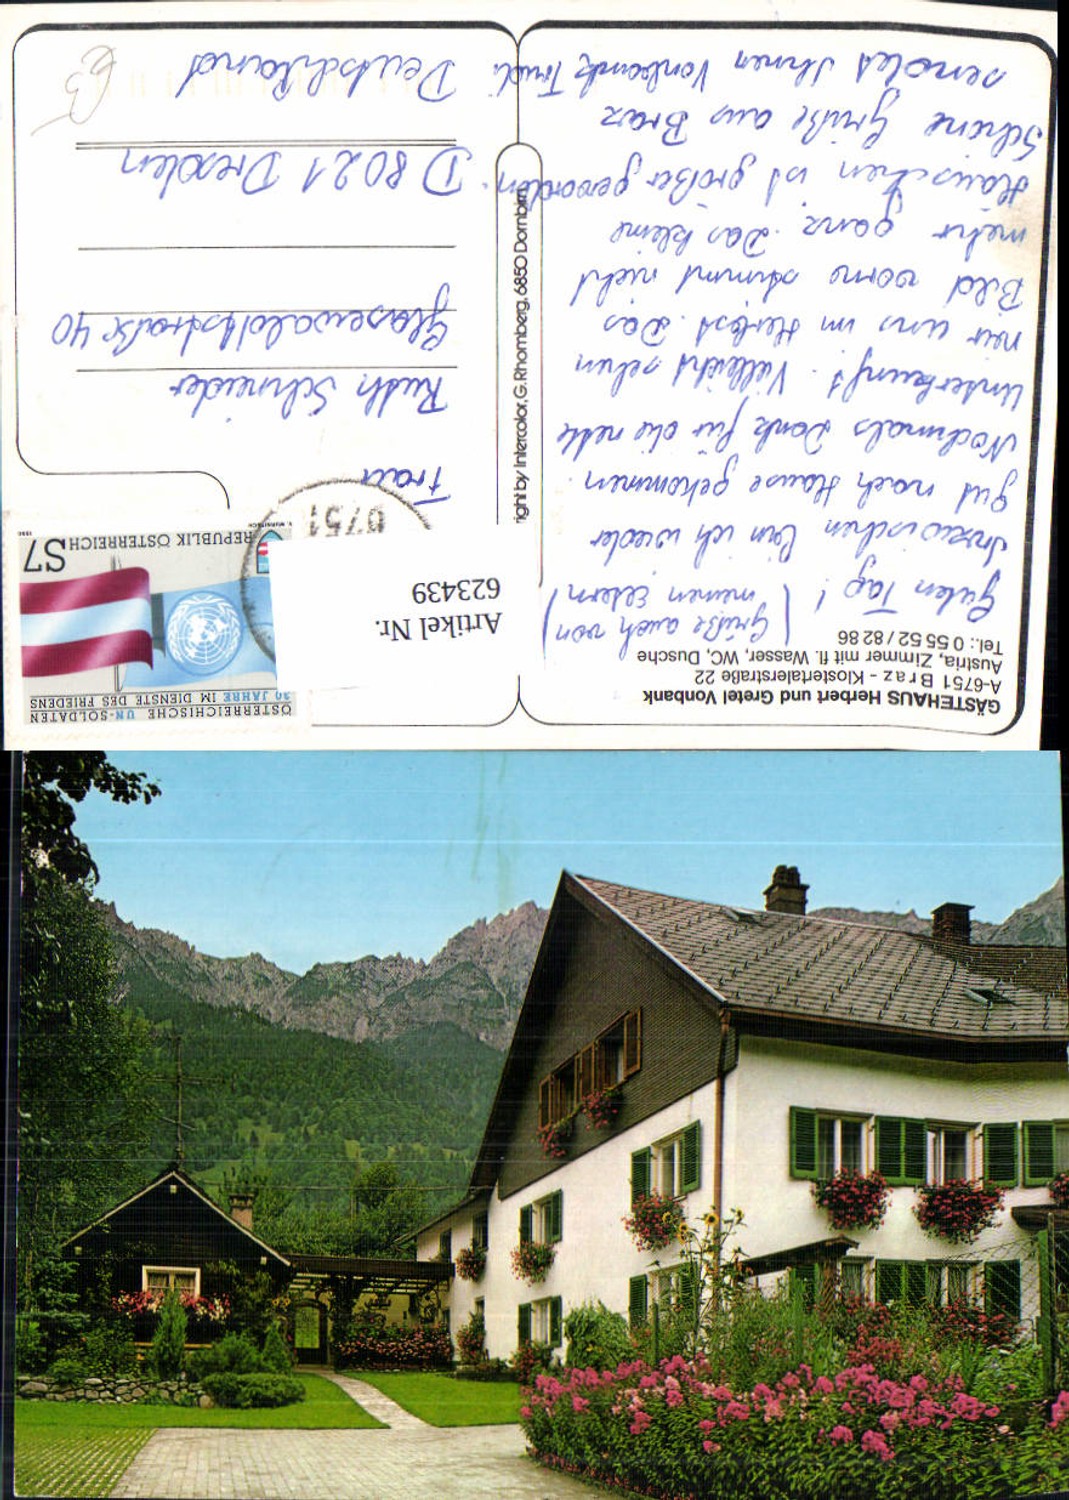 GÄSTEHAUS Herbert und Gretel Vonbank
A-6751 Braz - Klostertalerstraße 22
Austria, Zimmer mit fl. Wasser, WC, Dusche
Tel.: 0 55 52 / 82 86
Guten Tag! (Grüße auch von
meinen Eltern)
Inzwischen bin ich wieder
gut nach Hause gekommen.
Nochmals Dank für die nette
Unterkunft. Vielleicht sehen
wir uns im Herbst. Das
Bild vorne stimmt nicht
mehr ganz. Das kleine
Häuschen ist größer geworden.
Schöne Grüße aus Braz
sendet Ihnen Vonbank Trudi
right by Intercolor, G. Rhomberg, 6850 Dornbirn
ÖSTERREICHISCHE UN-SOLDATEN
30 JAHRE IM DIENSTE DES FRIEDENS
REPUBLIK ÖSTERREICH S7
6751
Artikel Nr.
623439
Frau
Ruth Schneider
Glasewaldtstraße 40
D 8021 Dresden
Deutschland